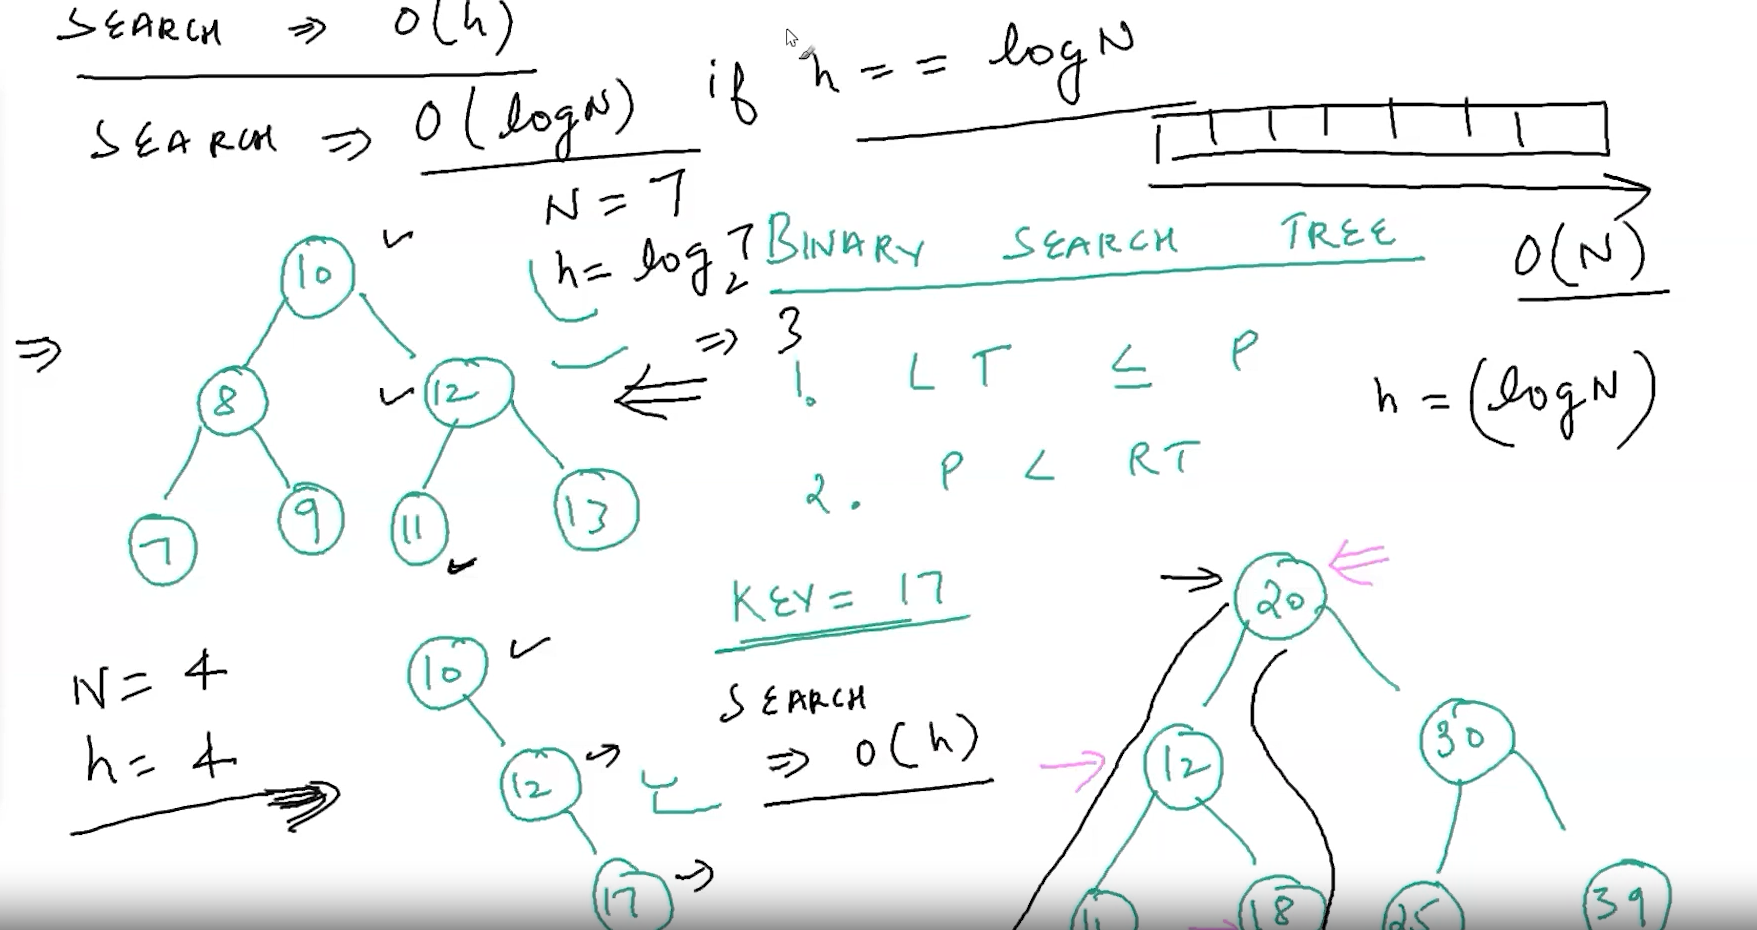 SEARCH ⇒ O(h)
SEARCH ⇒ O(logN) if h == logN
N = 7
h = log₂7
⇒ 3
BINARY SEARCH TREE
O(N)
1. LT ≤ P
h = (logN)
2. P < RT
10
8
12
7
9
11
13
KEY = 17
SEARCH
⇒ O(h)
N = 4
h = 4
10
12
17
20
12
30
11
18
25
39